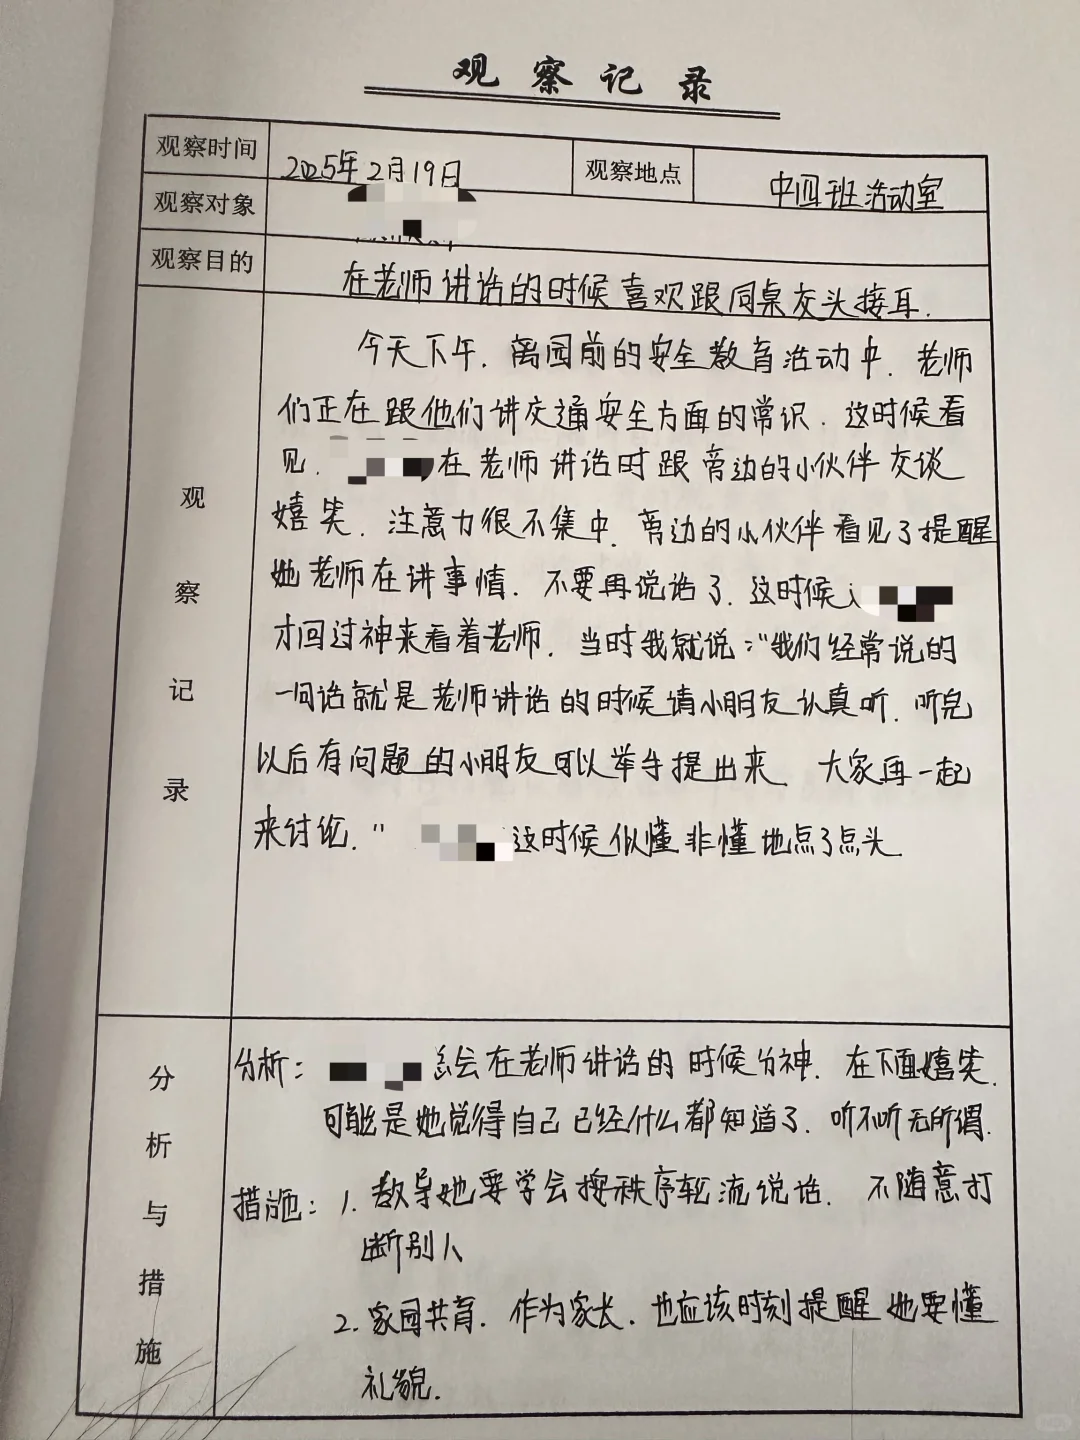 观察记录
观察时间 2025年2月19日 观察地点 中四班活动室
观察对象
观察目的 在老师讲话的时候喜欢跟同桌交头接耳.
观察记录
今天下午.离园前的安全教育活动中.老师
们正在跟他们讲交通安全方面的常识.这时候看
见. 在老师讲话时跟旁边的小伙伴交谈
嬉笑.注意力很不集中.旁边的小伙伴看见了提醒
她老师在讲事情.不要再说话了.这时候
才回过神来看着老师.当时我就说:"我们经常说的
一句话就是老师讲话的时候请小朋友认真听.听完
以后有问题的小朋友可以举手提出来.大家再一起
来讨论." 这时候似懂非懂地点了点头.
分析与措施
分析: 总会在老师讲话的时候分神.在下面嬉笑.
可能是她觉得自己已经什么都知道了.听不听无所谓.
措施:1.教导她要学会按秩序轮流说话.不随意打
断别人
2.家园共育.作为家长.也应该时刻提醒她要懂
礼貌.